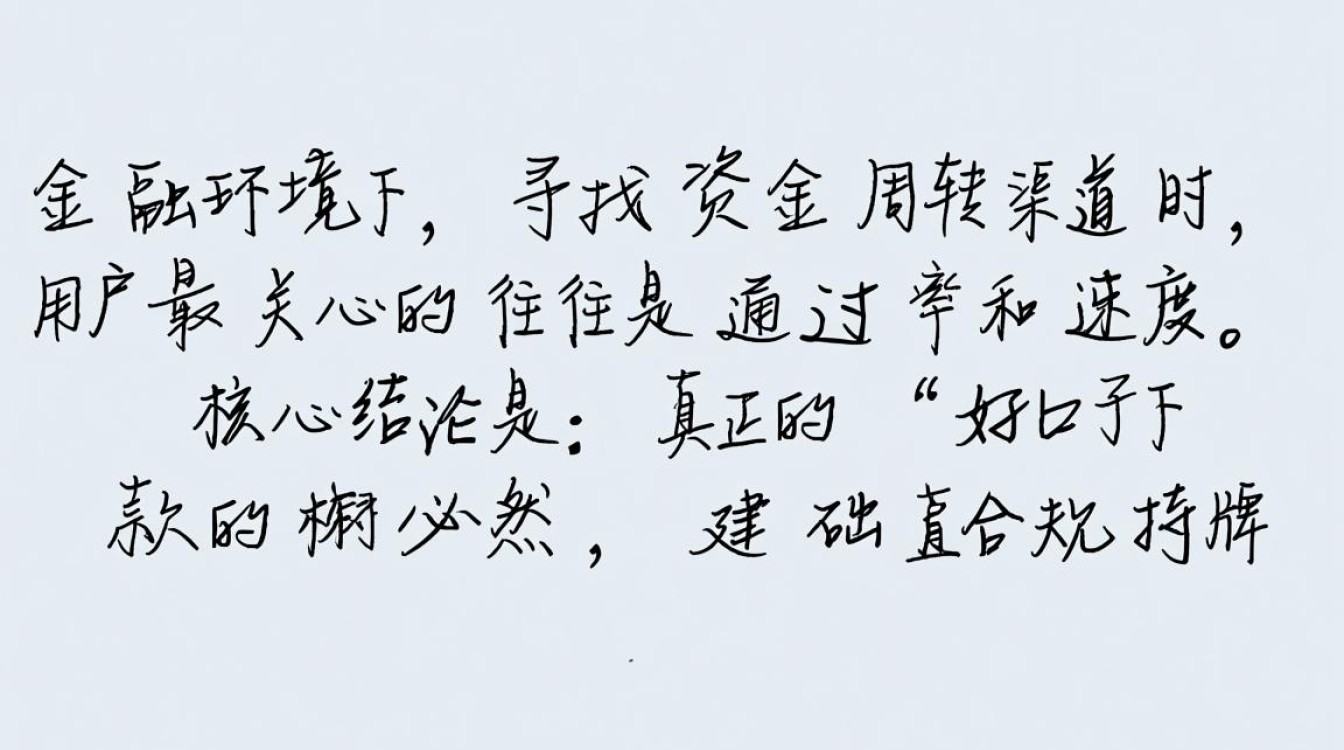 金融环境下，寻找资金周转渠道时，
用户最关心的往往是通过率和速度。
核心结论是：真正的“好口子下
款的必然，建础直合规持牌